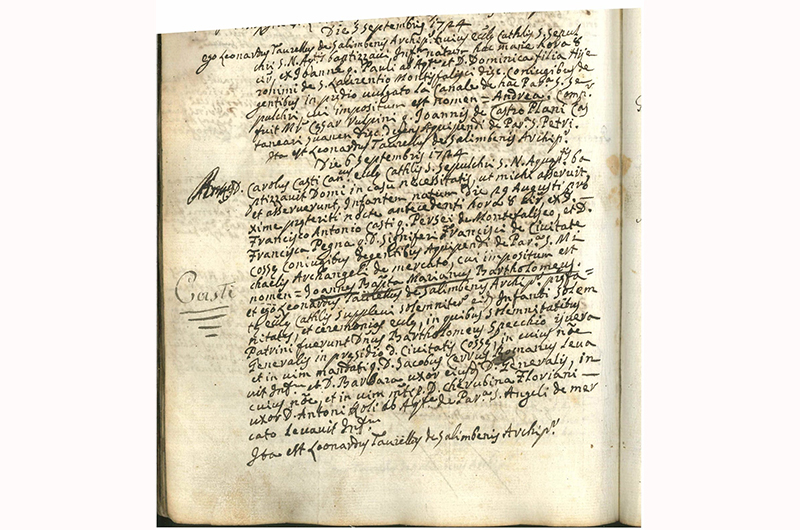 Die 5 Septembris 1724
Ego Leonardus Taurellus de Salimbenis Archip. huius Eccl. Cathlis S. Sepul
chri S. N. baptizzavi Inf. natum hac mane hora 8
ex Joanne q. Pauli ab et D. Dominica filia Hije
ronimi de S. Laurentio Montisfalisci conjugibus de
gentibus in predio vulgato La Canale de hac Par. S. Se
pulchri, cui impositum est nomen = Andrea. Comp.
fuit Mr Cesar Vulpini q. Joannis de Castro Plani Cas
taneari Suanen Aquipendi de Par. S. Petri.
Ita est Leonardus Taurellus de Salimbenis Archip.
Die 6 Septembris 1724
D. Carolus Casti Can. Eccl. Cathlis S. Sepulchri S. N. ba
ptizzavit Domi in casu necessitatis, ut michi asseruit,
et asseruerunt, Infantem natum Die 29 Augusti pro
xime preteriti nocte antecedenti hora 8 ex D.
Francisco Antonio Casti q. Persei de Montefalisco, et D.
Francisca Pegna q. D. Signiferi Francisci de Civitate
Cosse Conjugibus degentibus Aquipendi de Par. S. Mi
chaelis Archangeli de mercato, cui impositum est
nomen = Joannes Bapta Marianus Bartholomeus.
et ego Leonardus Taurellus de Salimbenis Archip.
Eccl. Cathlis supplevi solemniter Infanti Solem
nitates, et ceremonias Eccl., in quibus solemnitatibus
Patrini fuerunt Dnus Bartholomeus Specchio
Generalis in presidio d. Civitatis Cosse, in cuius nõe
et in vim mandati q. D. Jacobus Cervus Leva
vit Inf. et D. Barbara uxor eiusd. D. Generalis, in
cuius nõe, et in vim D. Cherubina Floriani
uxor D. Antoni de Par. S. Angeli de mer
cato Levavit Inf.
Ita est Leonardus Taurellus de Salimbenis Archip.
Casti